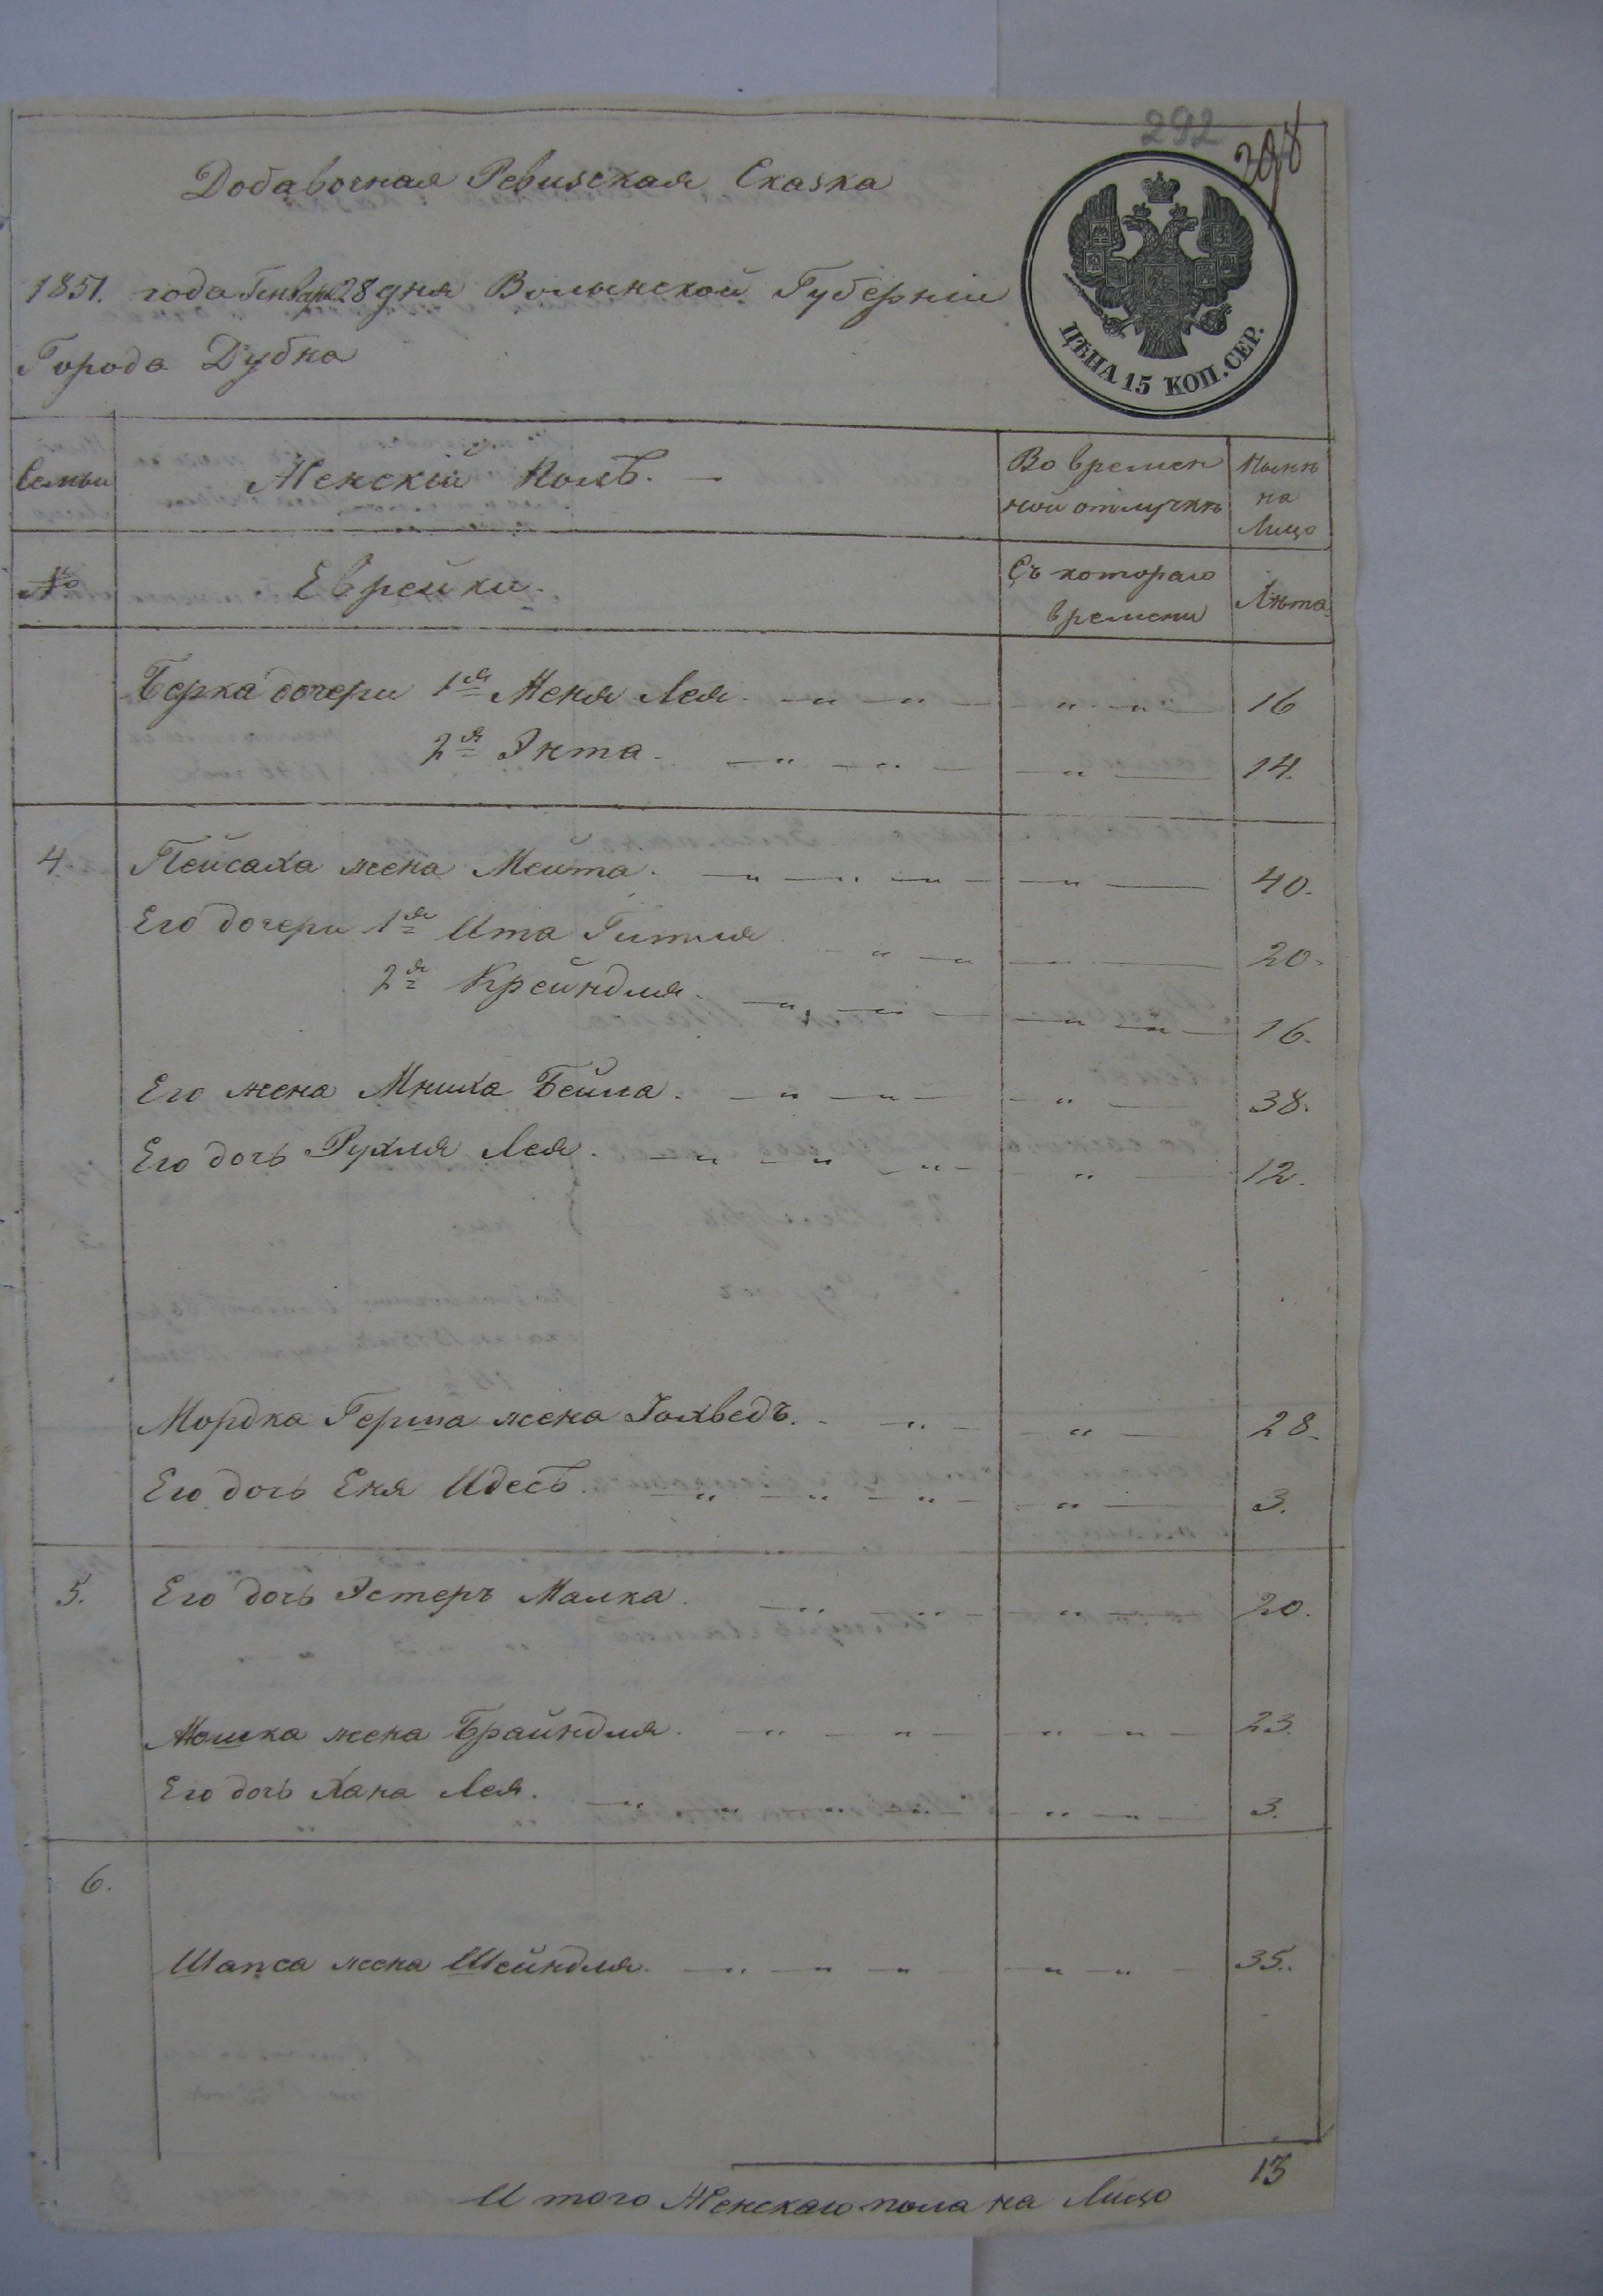 292
298
Добавочная Ревизская Сказка
ЦѢНА 15 КОП. СЕР.
1851. года Генваря 28 дня Волынской Губерніи
Города Дубна
Семьи
Женскій Полъ. —
Во времен
ной отлучкѣ
Нынѣ
на
Лицо
№
Еврейки.
Съ котораго
времени
Лѣта.
Берка дочери 1я Женя Лея. — „ — „ — „ — „ — 16
2я Энта. — „ — „ — „ — 14.
4. Пейсаха жена Мейта. — „ — „ — „ — „ — 40.
Его дочери 1я Ита Гитля „ — „ — 20.
2я Крейндля. — „ — „ — „ — „ — 16.
Его жена Мниха Бейла. — „ — „ — „ — 38.
Его дочь Рухля Лея. — „ — „ — „ — „ — 12.
Мордка Герша жена Іохведъ. — „ — „ — 28.
Его дочь Еня Идесъ. — „ — „ — „ — „ — 3.
5. Его дочь Эстеръ Малка. — „ — „ — „ — 20.
Мошка жена Брайндля. — „ — „ — „ — „ — 23.
Его дочь Хана Лея. — „ — „ — „ — „ — „ — „ — 3.
6.
Шапса жена Шейндля. — „ — „ — „ — „ — „ — 35.
Итого Женскаго пола на Лицо 13